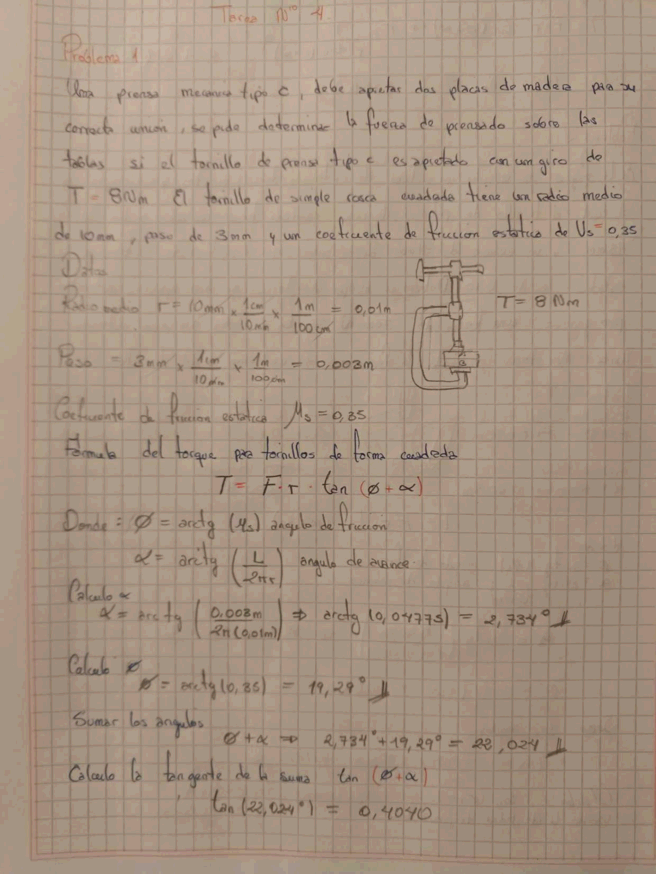 Tarea Nº 4.
Problema 1
Una prensa mecanica tipo C, debe apretar dos placas de madera para su
correcta union, se pide determinar la fuerza de prensado sobre las
tablas si el tornillo de prensa tipo c es apretado con un giro de
T = 8Nm El tornillo de simple rosca cuadrada tiene un radio medio
de 10mm, paso de 3mm y un coeficiente de friccion estatico de Us = 0,35
Datos
Radio medio r = 10mm × 1cm/10mm × 1m/100cm = 0,01m
T = 8 Nm
Paso = 3mm × 1cm/10mm × 1m/100cm = 0,003m
Coeficiente de friccion estatica μs = 0,35
Formula del torque para tornillos de forma cuadrada
T = F · r · tan (ø + α)
Donde : ø = arctg (μs) angulo de friccion
α = arctg (L/2πr) angulo de avance
Calculo α
α = arc tg (0.003m/2π(0,01m)) ⇒ arctg (0,04775) = 2,734°
Calculo ø
ø = arctg (0,35) = 19,29°
Sumar los angulos
ø + α ⇒ 2,734° + 19,29° = 22,024
Calculo la tangente de la suma tan (ø+α)
tan (22,024°) = 0,4040